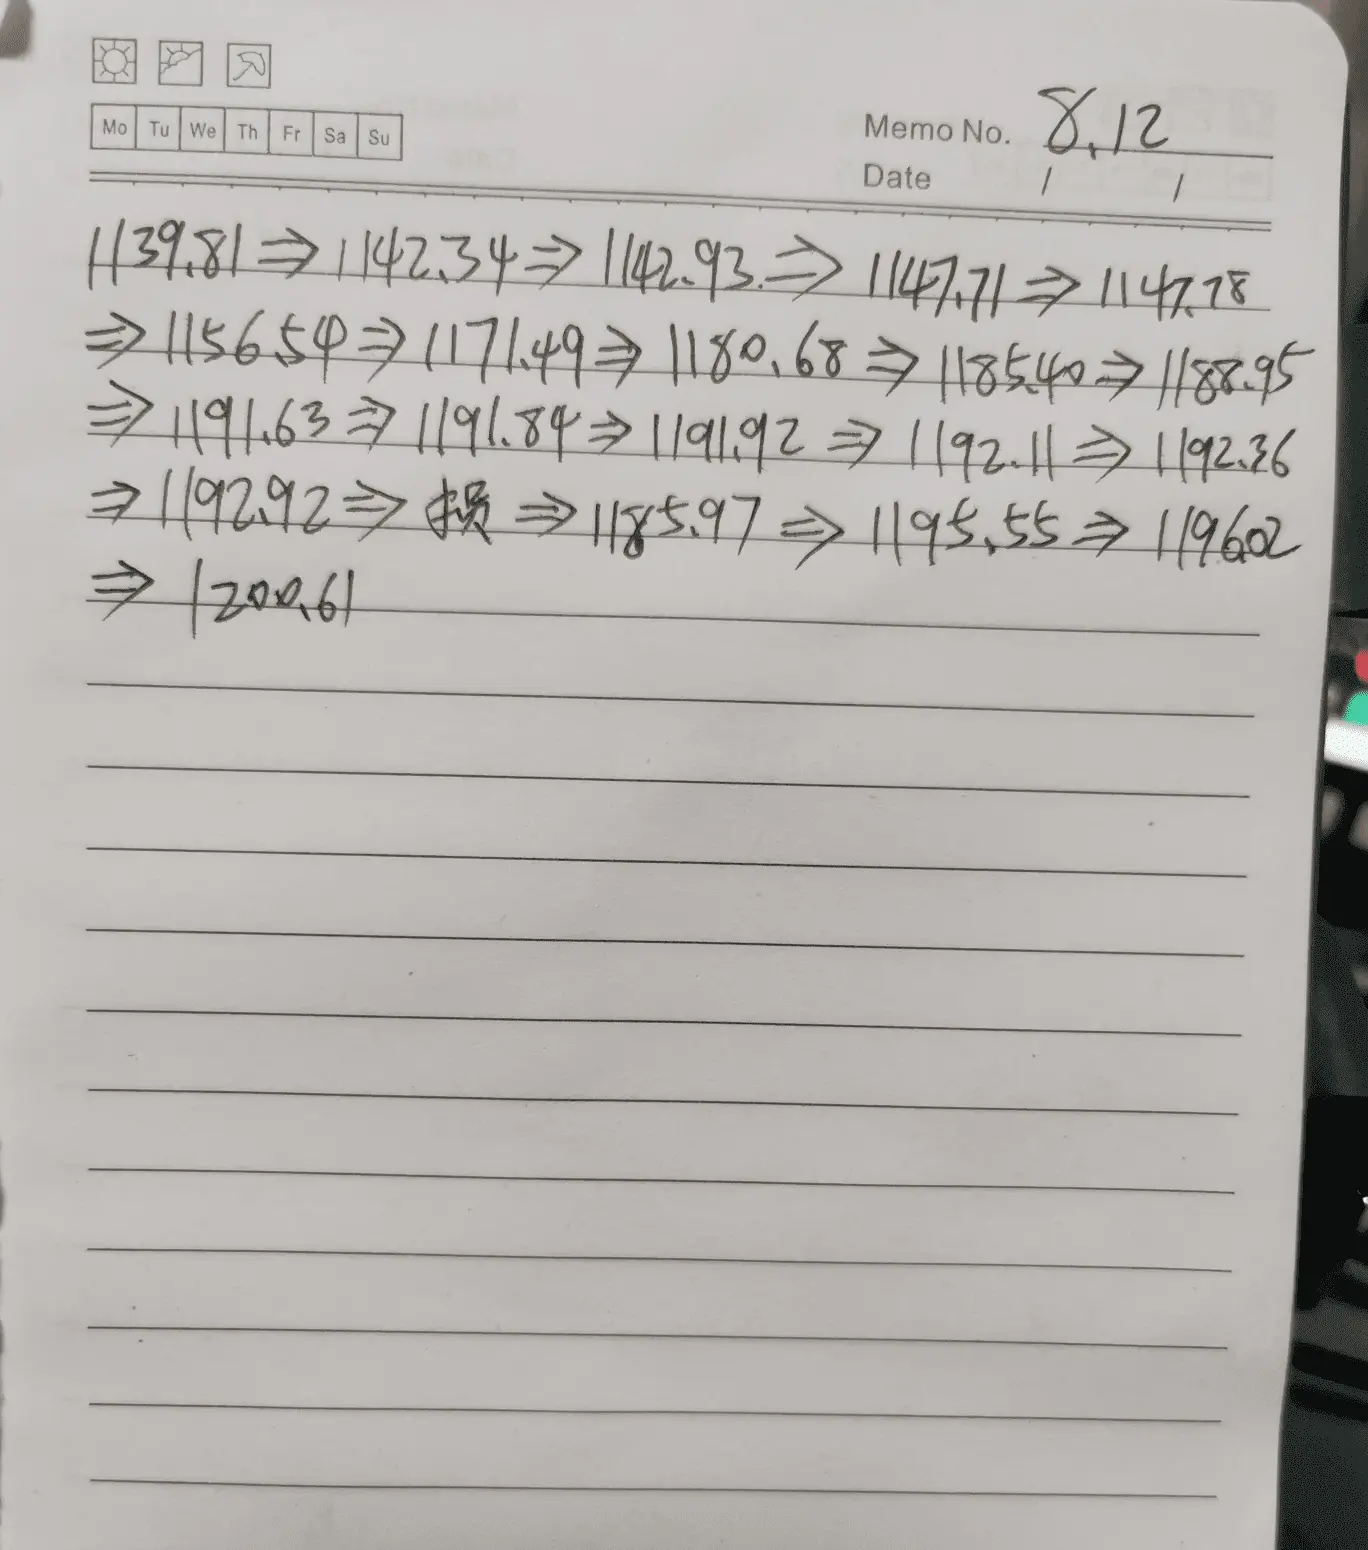 Mo Tu We Th Fr Sa Su
Memo No. 8.12
Date / /
1139.81⇒1142.34⇒1142.93.⇒1147.71⇒1147.78
⇒1156.54⇒1171.49⇒1180.68⇒1185.40⇒1188.95
⇒1191.63⇒1191.84⇒1191.92⇒1192.11⇒1192.36
⇒1192.92⇒损⇒1185.97⇒1195.55⇒1196.02
⇒1200.61